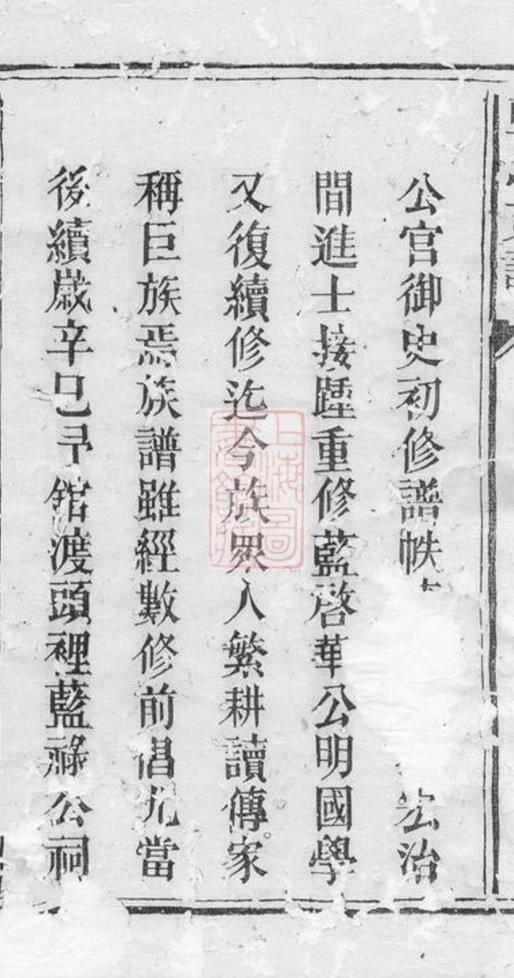 公宮御史初修譜帙
宏治
間進士接踵重修藍啓華公明國學
又復續修迄今族眾人繁耕讀傳家
稱巨族焉族譜雖經數修前倡尤當
後續歲辛巳予館渡頭裡藍祿公祠
上海圖